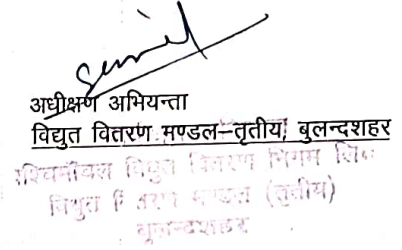 अधीक्षण अभियन्ता
विद्युत वितरण मण्डल–तृतीय, बुलन्दशहर
विद्युत वितरण निगम लि०
विद्युत मण्डल (तृतीय)
बुलन्दशहर